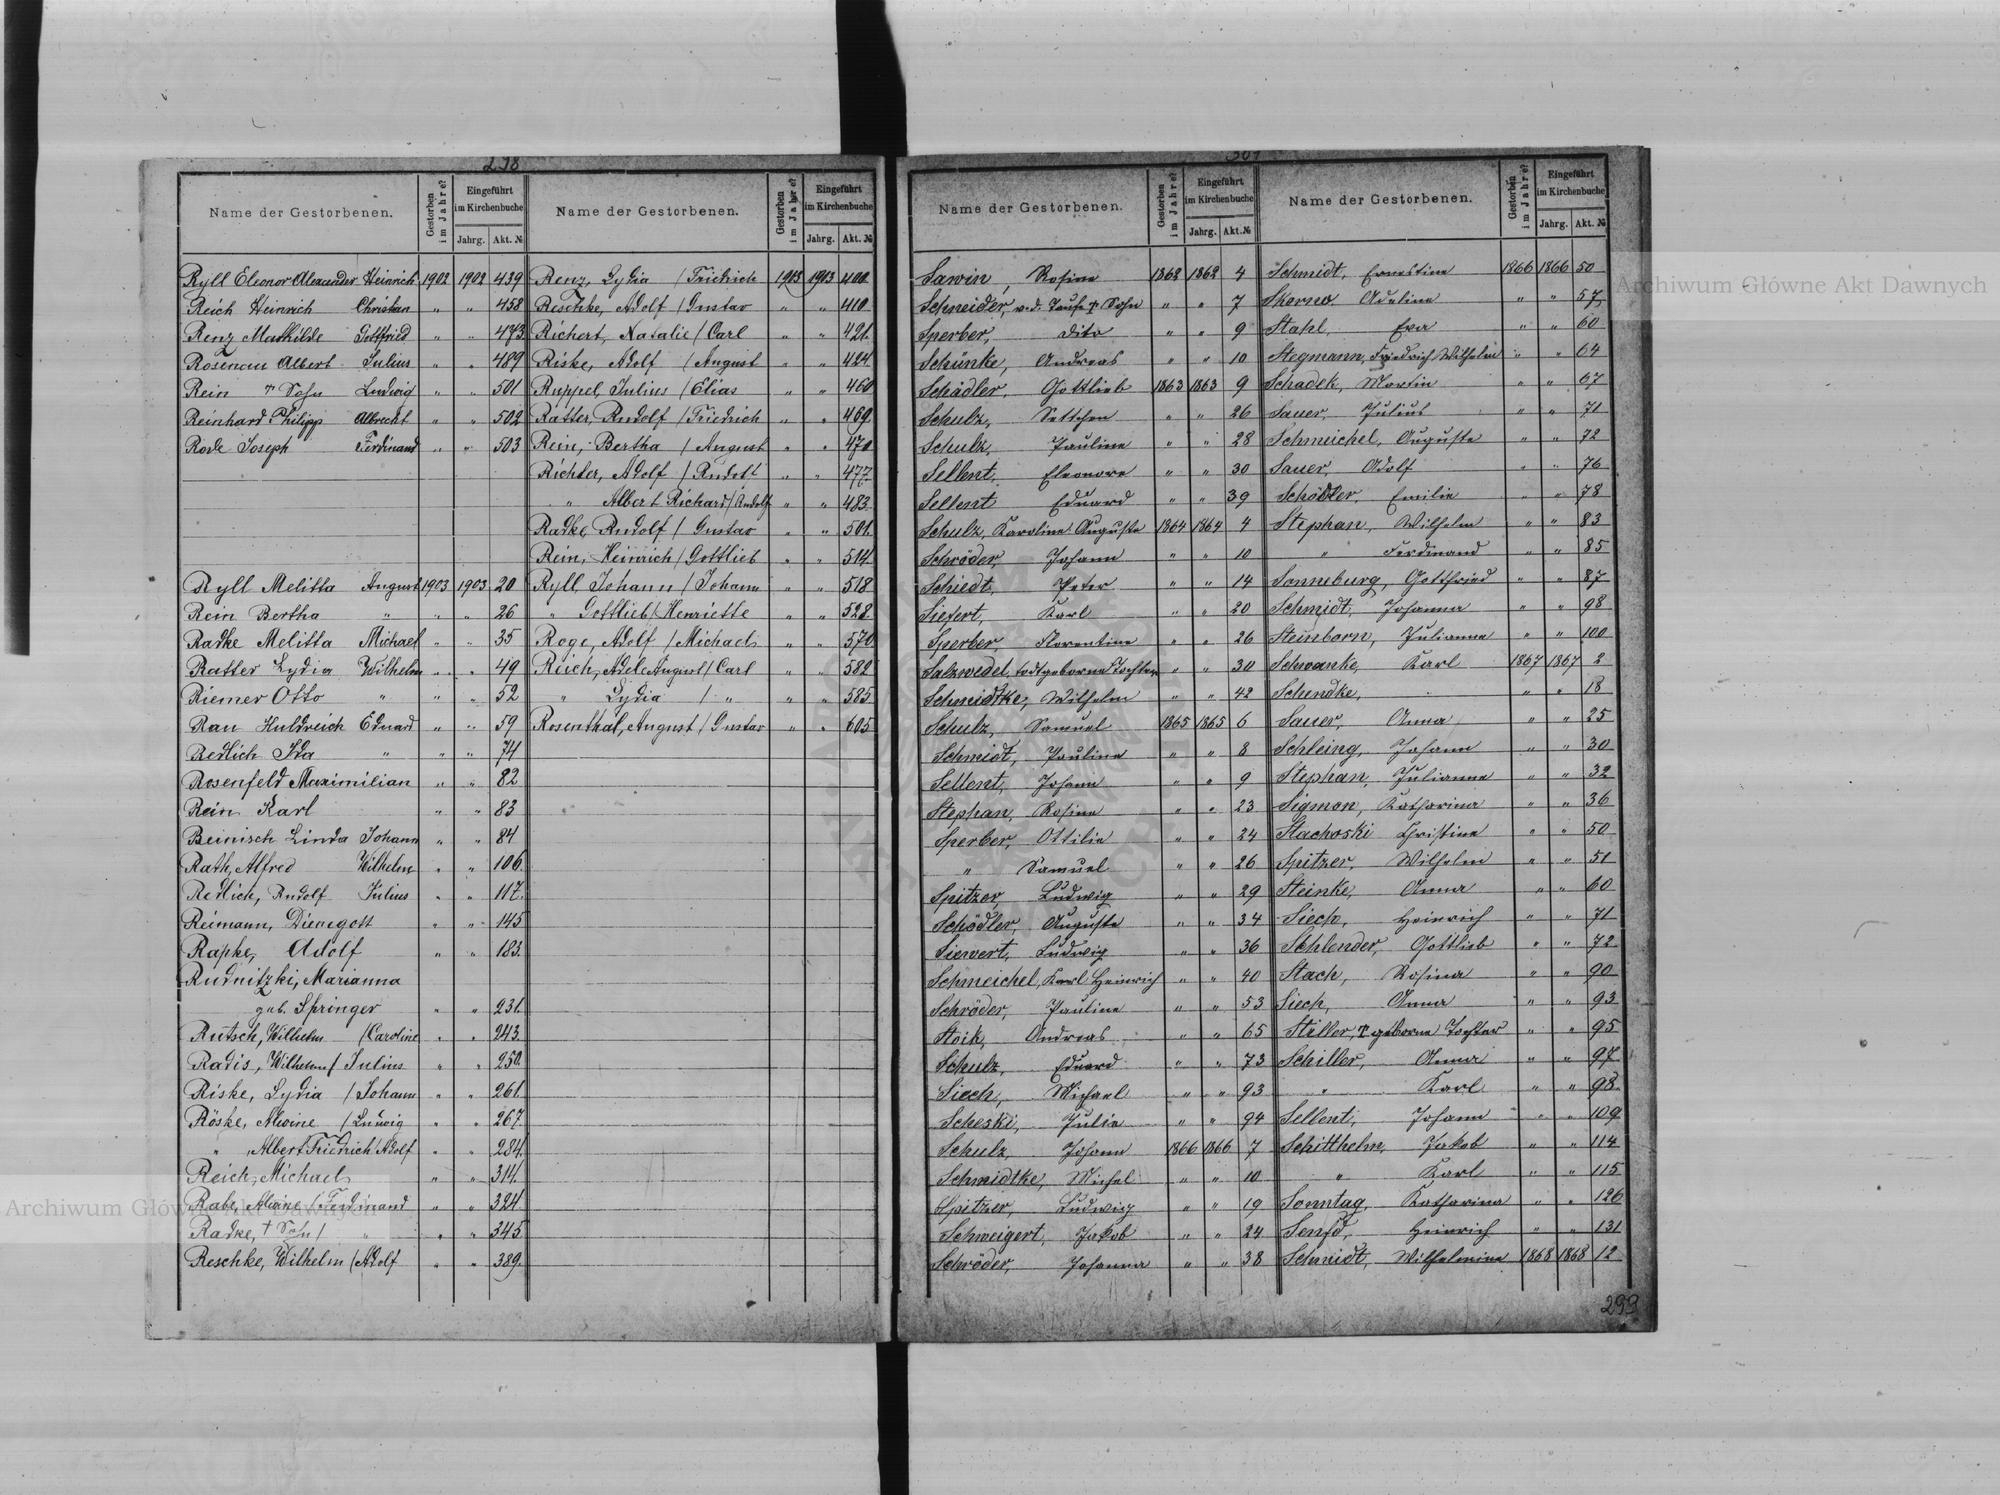 298
Name der Gestorbenen. Gestorben im Jahre? Eingeführt im Kirchenbuche Jahrg. Akt. №
Ryll Eleonor Alexander Heinrich 1902 1902 439
Reich Heinrich Christian " " 458
Renz Mathilde Gottfried " " 473
Rosenau Albert Julius " " 489
Rein † Sohn Ludwig " " 501
Reinhard Philipp Albrecht " " 502
Rode Joseph Ferdinand " " 503
Ryll Melitta August 1903 1903 20
Rein Bertha " " " 26
Radke Melitta Michael " " 35
Ratter Lydia Wilhelm " " 49
Riemer Otto " " " 52
Rau Huldreich Eduard " " 59
Redlich Ida " " " 74
Rosenfeld Maximilian " " 82
Rein Karl " " 83
Reinisch Linda Johann " " 84
Rath, Alfred Wilhelm " " 106
Redlich, Rudolf Julius " " 117.
Reimann, Dienegott " " 145
Rapke, Adolf " " 183.
Rudnitzki, Marianna
geb. Springer " " 231.
Rutsch, Wilhelm /Caroline " " 243.
Radis, Wilhelm / Julius " " 250.
Riske, Lydia /Johann " " 261.
Röske, Alwine /Ludwig " " 267.
" Albert Friedrich /Adolf " " 284.
Reich, Michael " " 314.
Rabe, Alwine / Ferdinand " " 324.
Radke, † Sohn / " " " 345.
Reschke, Wilhelm /Adolf " " 389.
Name der Gestorbenen. Gestorben im Jahre? Eingeführt im Kirchenbuche Jahrg. Akt. №
Renz, Lydia /Friedrich 1903 1903 400
Reschke, Adolf /Gustav " " 410.
Richert, Natalie /Carl " " 421.
Riske, Adolf /August " " 424.
Ruppel, Julius /Elias " " 460
Ratter, Rudolf /Friedrich " " 469.
Rein, Bertha /August " " 470
Richter, Adolf /Rudolf " " 477.
" Albert Richard /Rudolf " " 483.
Radke, Rudolf / Gustav " " 501.
Rein, Heinrich /Gottlieb " " 514.
Ryll, Johann /Johann " " 518
" Gottlieb /Henriette " " 528.
Roge, Adolf /Michael " " 570
Reich, Adele August /Carl " " 582
" Lydia / " " " 585
Rosenthal, August /Gustav " " 605
301
Name der Gestorbenen. Gestorben im Jahre? Eingeführt im Kirchenbuche Jahrg. Akt. №
Sawin, Rosine 1862 1862 4
Schneider, v. d. Taufe † Sohn " " 7
Sperber, dito " " 9
Schünke, Andreas " " 10
Schädler, Gottlieb 1863 1863 9
Schulz, " " 26
Schulz, Pauline " " 28
Sellent, Eleonore " " 30
Sellent Eduard " " 39
Schulz, Karoline Auguste 1864 1864 4
Schröder, Johann " " 10
Schiedt, Peter " " 14
Siefert, Karl " " 20
Sperber, Florentine " " 26
Salzwedel, todtgeborne Tochter " " 30
Schmidtke, Wilhelm " " 42
Schulz, Samuel 1865 1865 6
Schmidt, Pauline " " 8
Sellent, Johann " " 9
Stephan, Rosine " " 23
Sperber, Ottilie " " 24
" Samuel " " 26
Spitzer, Ludwig " " 29
Schödler, Auguste " " 34
Siewert, Ludwig " " 36
Schmeichel, Karl Heinrich " " 40
Schröder, Pauline " " 53
Stoik, Andreas " " 65
Schulz, Eduard " " 73
Siech, Michael " " 93
Scheski, Julie " " 94
Schulz, Johann 1866 1866 7
Schmidtke, Michel " " 10
Spitzer, Ludwig " " 19
Schweigert, Jakob " " 24
Schröder, Johanna " " 38
Name der Gestorbenen. Gestorben im Jahre? Eingeführt im Kirchenbuche Jahrg. Akt. №
Schmidt, Ernestine 1866 1866 50
Skorna Adeline " " 57
Stahl, Eva " " 60
Stegmann, Friedrich Wilhelm " " 64
Schadek, Martin " " 67
Sauer, Julius " " 71
Schmeichel, Auguste " " 72
Sauer, Adolf " " 76
Schödler, Emilie " " 78
Stephan, Wilhelm " " 83
" Ferdinand " " 85
Sonneburg, Gottfried " " 87
Schmidt, Johanna " " 98
Steinborn, Julianna " " 100
Schwanke, Karl 1867 1867 2
Schendke, " " 18
Sauer, Anna " " 25
Schleing, Johann " " 30
Stephan, Julianna " " 32
Sigmon, Katharina " " 36
Stachoski Christine " " 50
Spitzer, Wilhelm " " 51
Steinke, Anna " " 60
Siech, Heinrich " " 71
Schlender, Gottlieb " " 72
Stach, Rosina " " 90
Siech, Anna " " 93
Stiller, † geborne Tochter " " 95
Schiller, Anna " " 97
" Karl " " 98
Sellent, Johann " " 109
Schitthelm, Jakob " " 114
" Karl " " 115
Sonntag, Katharina " " 126
Senfd, Heinrich " " 131
Schmidt, Wilhelmine 1868 1868 12
299
Archiwum Główne Akt Dawnych
Archiwum Główne Akt Dawnych